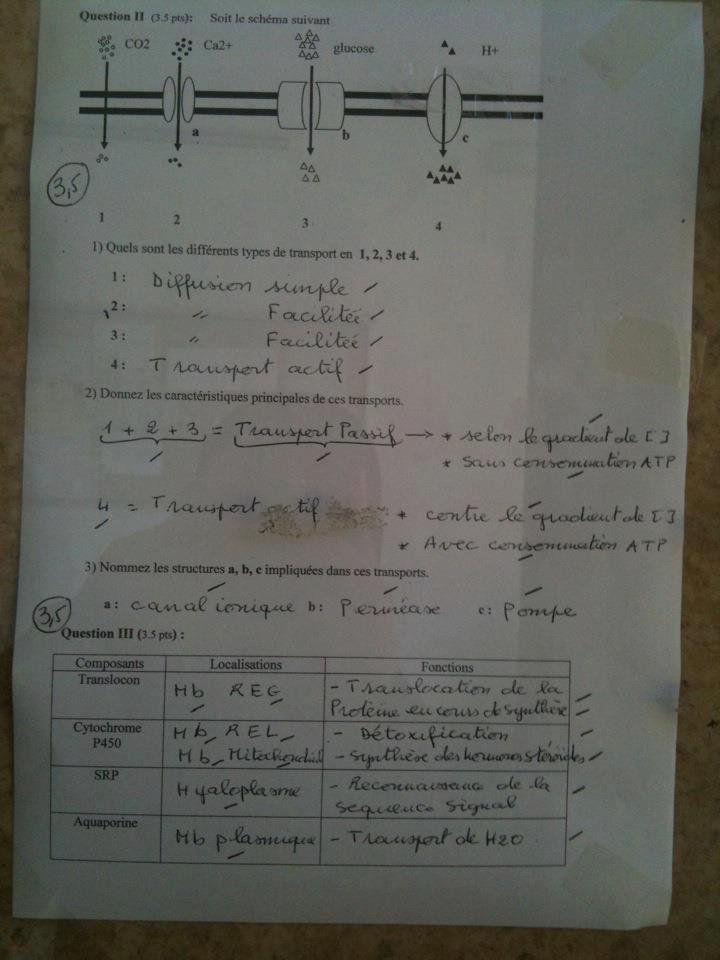 Question II (3.5 pts): Soit le schéma suivant
CO2 Ca2+ glucose H+
a b c
3,5
1 2 3 4
1) Quels sont les différents types de transport en 1, 2, 3 et 4.
1 : Diffusion simple
2 : " Facilitée
3 : " Facilitée
4 : Transport actif
2) Donnez les caractéristiques principales de ces transports.
1 + 2 + 3 = Transport Passif → * selon le gradient de [ ]
* Sans consommation ATP
4 = Transport actif * contre le gradient de [ ]
* Avec consommation ATP
3) Nommez les structures a, b, c impliquées dans ces transports.
a : canal ionique b : Perméase c : Pompe
3,5
Question III (3.5 pts) :
Composants Localisations Fonctions
Translocon Mb REG - Translocation de la
Protéine en cours de synthèse
Cytochrome P450 Mb REL - Détoxification
Mb Mitochondrie - Synthèse des hormones stéroïdes
SRP Hyaloplasme - Reconnaissance de la
Sequence Signal
Aquaporine Mb plasmique - Transport de H2O